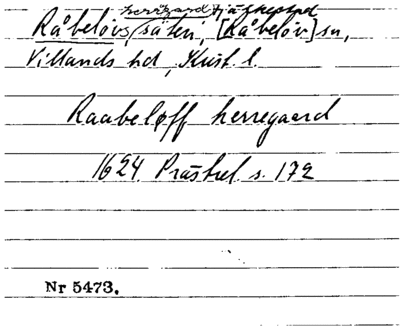 herrgård Fjälkestad
Råbelövs säteri, [Råbelöv] sn,
Villands hd, Krist. l.
Raabeløff herregaard
1624 Prästrel. s. 172
Nr 5473.